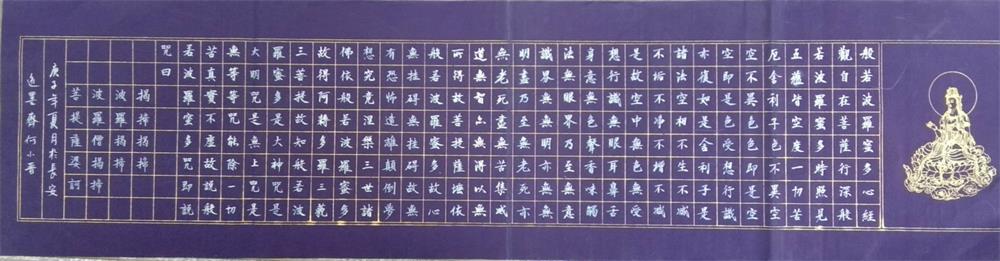 般若波羅蜜多心經
觀自在菩薩行深般
若波羅蜜多時照見
五蘊皆空度一切苦
厄舍利子色不異空
空不異色色即是空
空即是色受想行識
亦復如是舍利子是
諸法空相不生不滅
不垢不淨不增不減
是故空中無色無受
想行識無眼耳鼻舌
身意無色聲香味觸
法無眼界乃至無意
識界無無明亦無無
明盡乃至無老死亦
無老死盡無苦集滅
道無智亦無得以無
所得故菩提薩埵依
般若波羅蜜多故心
無挂礙無挂礙故無
有恐怖遠離顛倒夢
想究竟涅槃三世諸
佛依般若波羅蜜多
故得阿耨多羅三藐
三菩提故知般若波
羅蜜多是大神咒是
大明咒是無上咒是
無等等咒能除一切
苦真實不虛故說般
若波羅蜜多咒即說
咒曰
揭揥揭揥
波羅揭揥
波羅僧揭揥
菩提薩婆訶
庚子年夏月於長安
逸墨齋何小晉